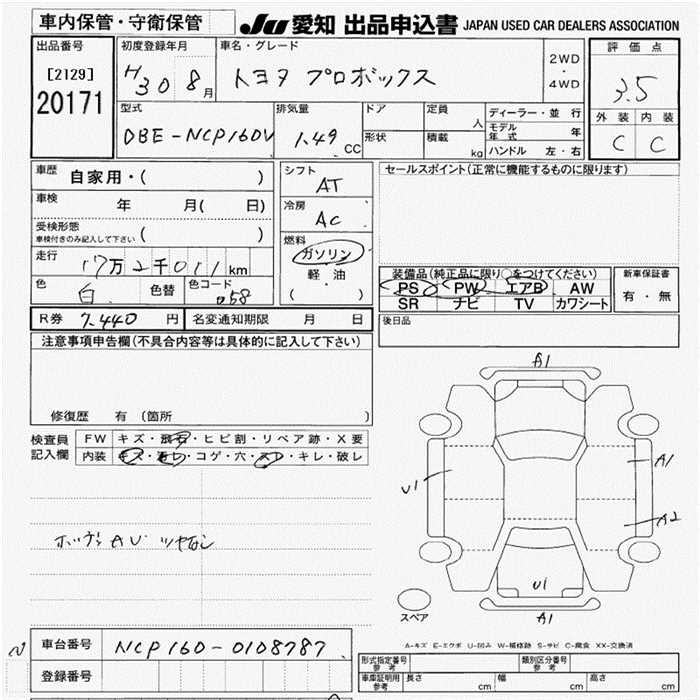 車内保管・守衛保管
JU 愛知 出品申込書 JAPAN USED CAR DEALERS ASSOCIATION
出品番号
[2129]
20171
初度登録年月
H30 8月
車名・グレード
トヨタ プロボックス
2WD
・
4WD
評価点
3.5
外装 内装
C C
型式
DBE-NCP160V
排気量
1.49 CC
ドア
形状
定員 人
積載 kg
ディーラー・並行
モデル年式 年
ハンドル 左・右
車歴 自家用・( )
車検 年 月( 日)
受検形態
車検付きのみ記入して下さい ( )
走行 17万2千011km
色 白 色替 色コード 058
シフト
AT
冷房
AC
燃料
ガソリン
軽油
( )
セールスポイント(正常に機能するものに限ります)
装備品(純正品に限り○をつけてください)
PS PW エアB AW
SR ナビ TV カワシート
新車保証書
有・無
後日品
R券 7,440円 名変通知期限 月 日
注意事項申告欄(不具合内容等は具体的に記入して下さい)
修復歴 有(箇所
検査員
記入欄
FW キズ・飛石・ヒビ割・リペア跡・X要
内装 キズ・汚レ・コゲ・穴・スレ・キレ・破レ
ボンネット AU ツヤなし
A1
U1
A1
A2
U1
A1
スペア
A-キズ E-エクボ U-凹み W-補修跡 S-サビ C-腐食 XX-交換済
車台番号 NCP160-0108787
登録番号
形式指定番号
参考
類別区分番号
参考
車庫証明用
参考
長さ cm 幅 cm 高さ cm